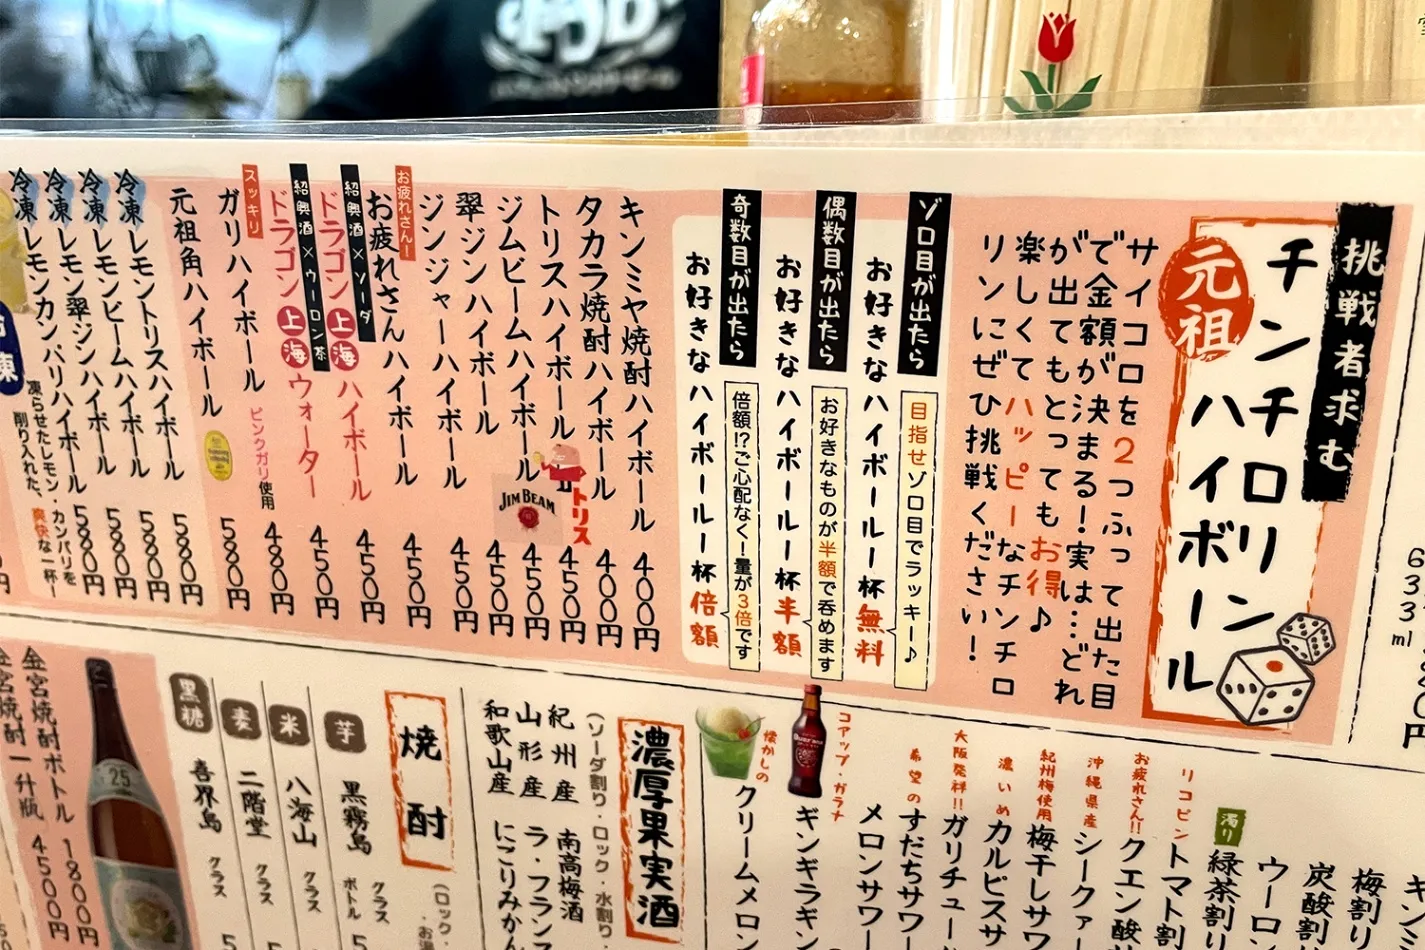 挑戦者求む
元祖
チンチロリン
ハイボール
サイコロを2つふって出た目
で金額が決まる！実は…どれ
が出てもとってもお得♪
楽しくてハッピーなチンチロ
リンにぜひ挑戦ください！
ゾロ目が出たら
目指せゾロ目でラッキー♪
お好きなハイボール一杯無料
偶数目が出たら
お好きなものが半額で呑めます
お好きなハイボール一杯半額
奇数目が出たら
倍額!?ご心配なく！量が3倍です
お好きなハイボール一杯倍額
キンミヤ焼酎ハイボール 400円
タカラ焼酎ハイボール 400円
トリスハイボール 450円
トリス
ジムビームハイボール 450円
JIM BEAM
翠ジンハイボール 450円
ジンジャーハイボール 450円
お疲れさんー
お疲れさんハイボール 450円
紹興酒×ソーダ
ドラゴン上海ハイボール 450円
紹興酒×ウーロン茶
ドラゴン上海ウォーター 450円
スッキリ
ガリハイボール ピンクガリ使用 480円
元祖角ハイボール 580円
冷凍レモントリスハイボール 580円
冷凍レモンビームハイボール 580円
冷凍レモン翠ジンハイボール 580円
冷凍レモンカンパリハイボール 580円
凍らせたレモン・カンパリを
削り入れた、爽快な一杯ー
633ml
円
キンミ
梅割り
炭酸割
ウーロン
濁り
緑茶割り
リコピン
トマト割
お疲れさん!!
クエン酸
沖縄県産
シークァー
紀州梅使用
梅干しサワ
濃いめ
カルピスサ
大阪発祥!!
ガリチュー
希望の
すだちサワー
メロンサワー
コアップ・ガラナ
ギンギラギン
懐かしの
クリームメロン
濃厚果実酒
(ソーダ割り・ロック・水割り・
紀州産 南高梅酒
山形産 ラ・フランス
和歌山産 にごりみかん
焼酎
(ロック・
・お湯
芋 黒霧島 グラス
ボトル
米 八海山 グラス
麦 二階堂 グラス
黒糖 喜界島 グラス
25
金宮焼酎ボトル 1800円
金宮焼酎一升瓶 4500円